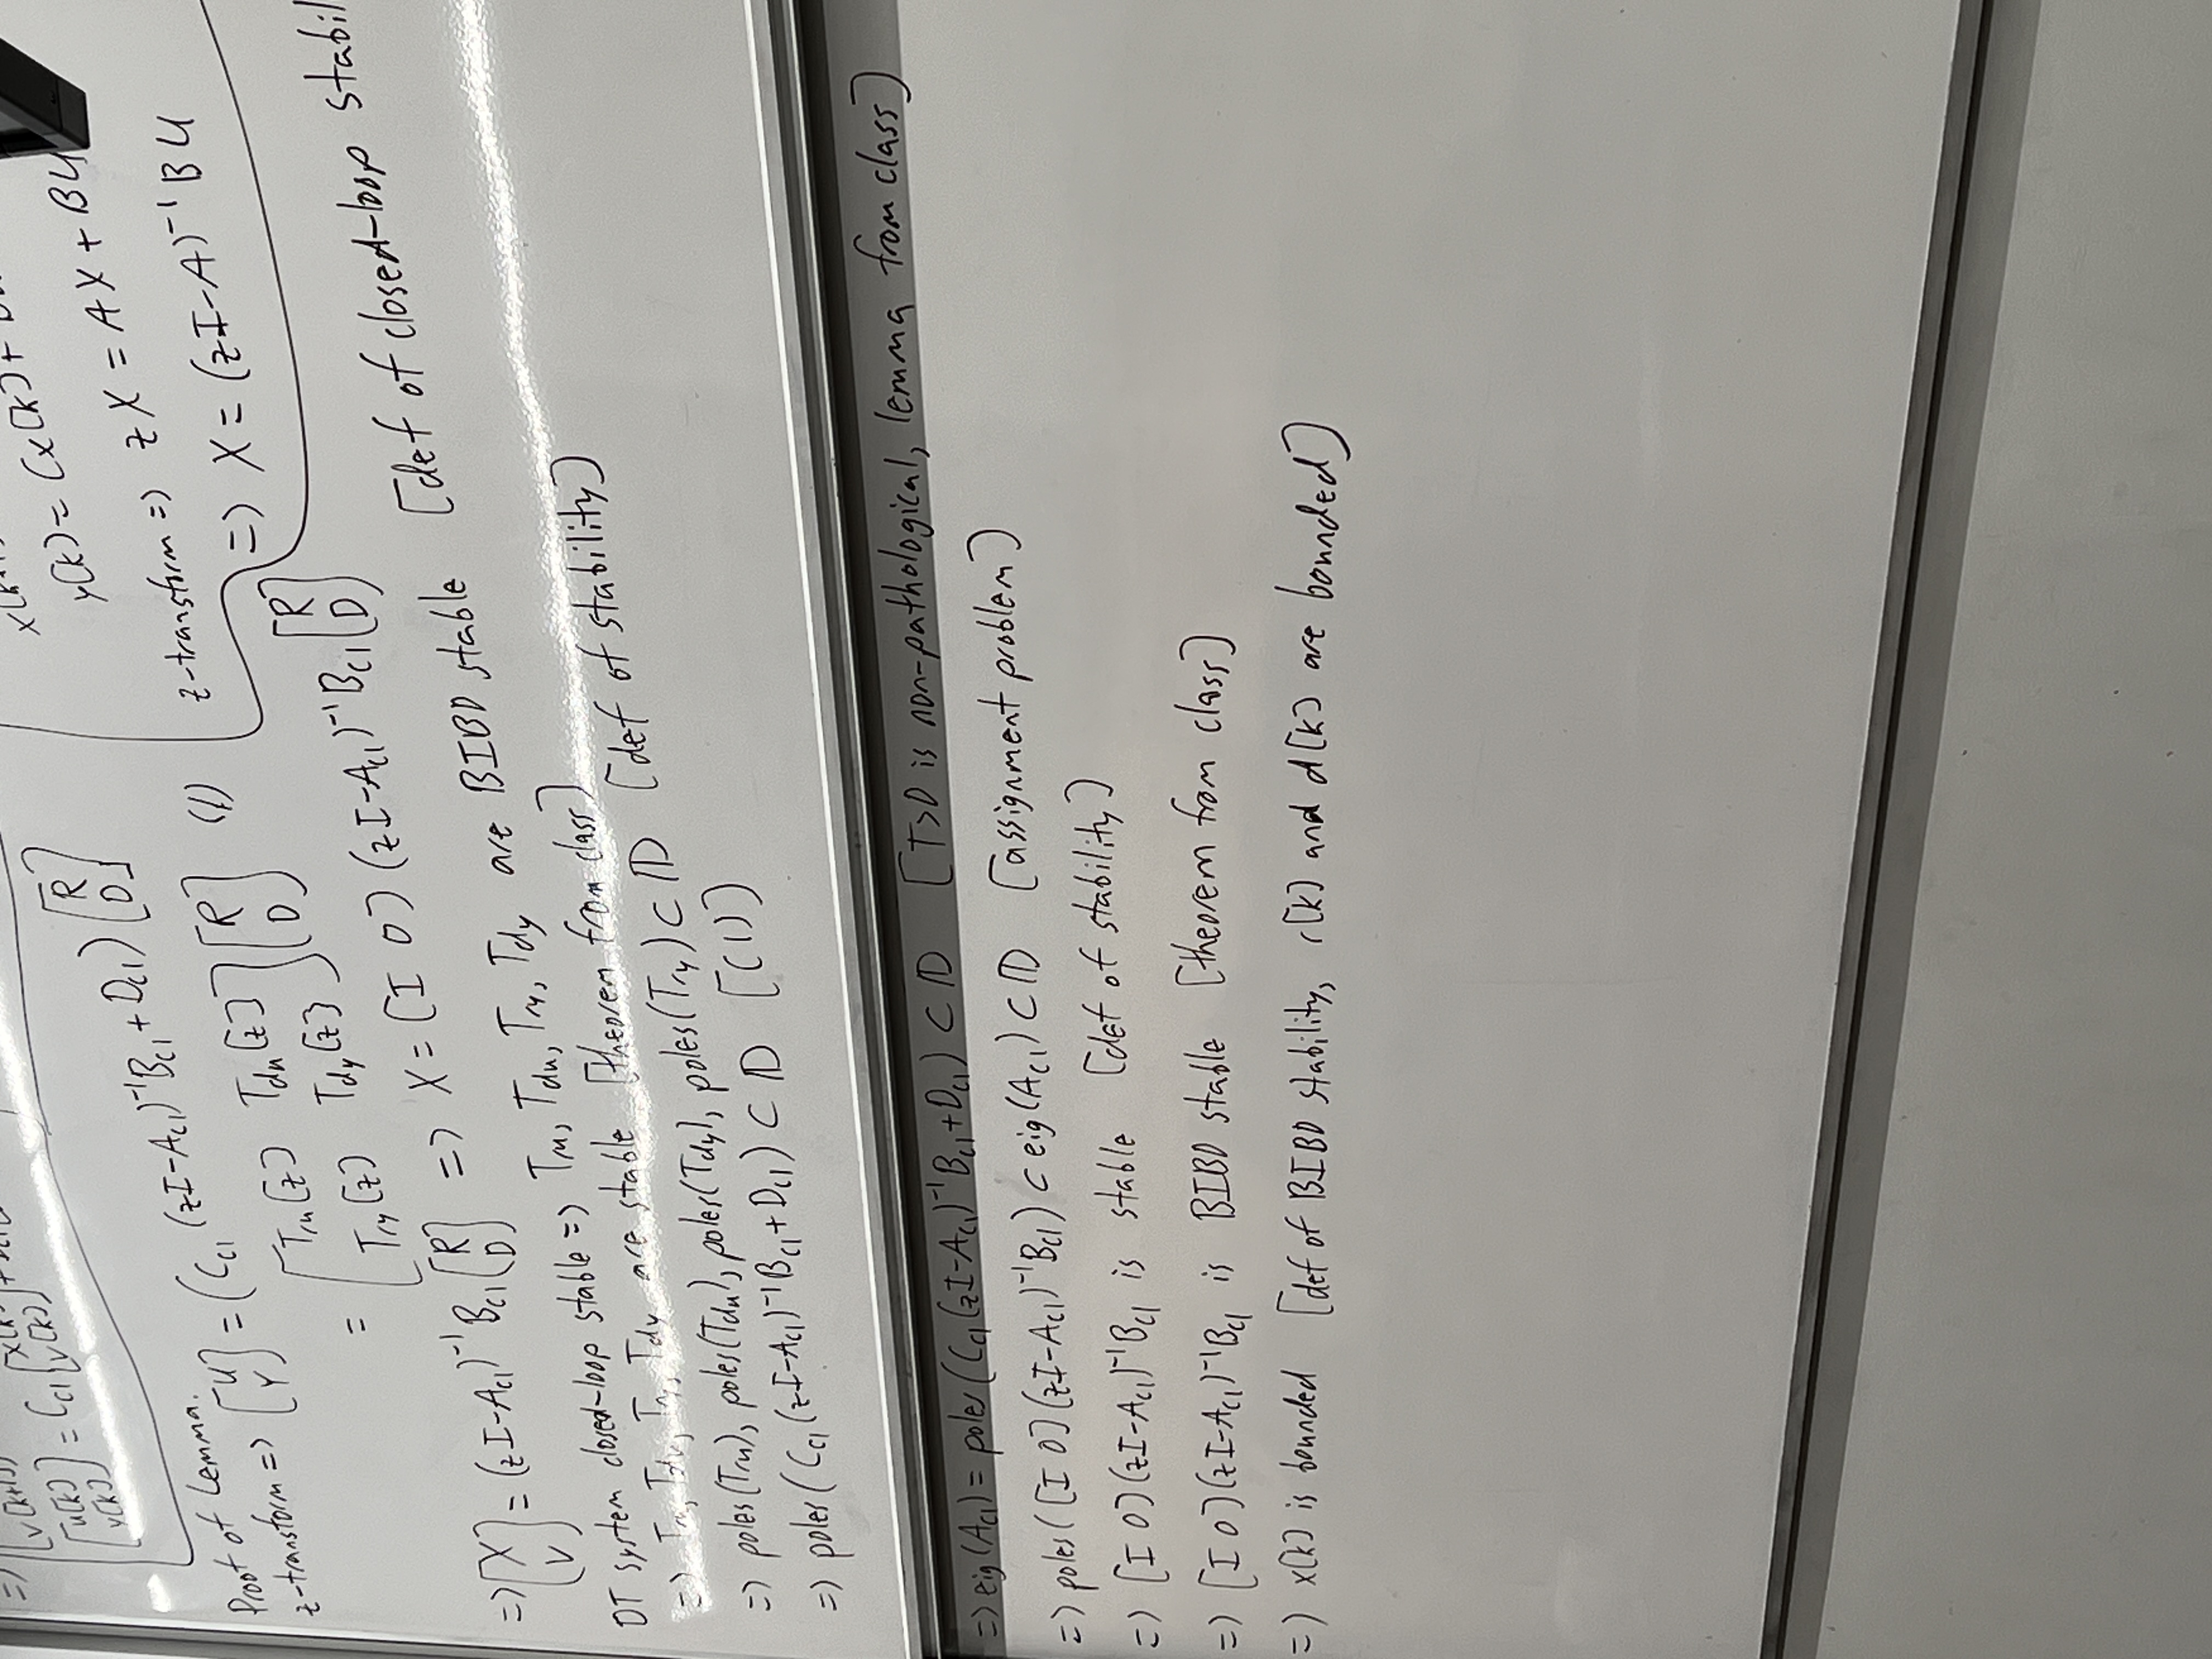 => [v[k+1]]
[u[k] y[k]] = Ccl [x[k] v[k]] +
Proof of Lemma.
z-transform => [U Y] = (Ccl (zI-Acl)⁻¹Bcl + Dcl) [R D]
= [Tru[z] Tdu[z] Try[z] Tdy[z]] [R D] (1)
=> [X V] = (zI-Acl)⁻¹Bcl [R D] => X = [I 0] (zI-Acl)⁻¹Bcl [R D]
DT system closed-loop stable => Tru, Tdu, Try, Tdy are BIBO stable [def of closed-loop stabil
=> Tru, Tdu, Try, Tdy are stable [theorem from class]
=> poles(Tru), poles(Tdu), poles(Tdy), poles(Try) ⊂ 𝔻 [def of stability]
=> poles(Ccl(zI-Acl)⁻¹Bcl+Dcl) ⊂ 𝔻 [(1)]
x[k+1]
y[k] = Cx[k] +
z-transform => zX = AX + BU
=> X = (zI-A)⁻¹BU
=> eig(Acl) = poles(Ccl(zI-Acl)⁻¹Bcl+Dcl) ⊂ 𝔻 [T>0 is non-pathological, lemma from class]
=> poles([I 0](zI-Acl)⁻¹Bcl) ⊂ eig(Acl) ⊂ 𝔻 [assignment problem]
=> [I 0](zI-Acl)⁻¹Bcl is stable [def of stability]
=> [I 0](zI-Acl)⁻¹Bcl is BIBO stable [theorem from class]
=> x[k] is bounded [def of BIBO stability, r[k] and d[k] are bounded]